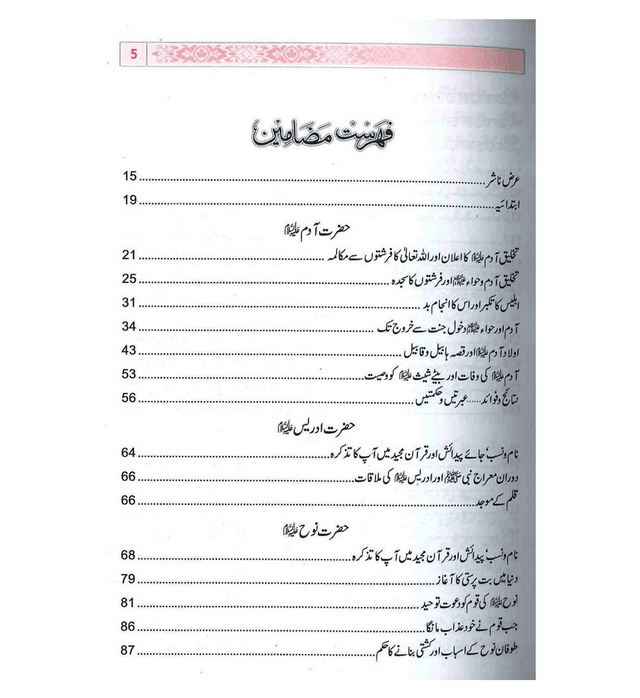 5
فہرست مضامین
عرض ناشر ........ 15
ابتدائیہ ........ 19
حضرت آدم علیہ السلام
تخلیق آدم علیہ السلام کا اعلان اور اللہ تعالیٰ کا فرشتوں سے مکالمہ ........ 21
تخلیق آدم و حواء علیہما السلام اور فرشتوں کا سجدہ ........ 25
ابلیس کا تکبر اور اس کا انجام بد ........ 31
آدم اور حواء علیہما السلام دخول جنت سے خروج تک ........ 34
اولاد آدم علیہ السلام اور قصہ ہابیل و قابیل ........ 43
آدم علیہ السلام کی وفات اور بیٹے شیث علیہ السلام کو وصیت ........ 53
نتائج و فوائد ...... عبرتیں و حکمتیں ........ 56
حضرت ادریس علیہ السلام
نام و نسب، جائے پیدائش اور قرآن مجید میں آپ کا تذکرہ ........ 64
دوران معراج نبی ﷺ اور ادریس علیہ السلام کی ملاقات ........ 66
قلم کے موجد ........ 66
حضرت نوح علیہ السلام
نام و نسب، پیدائش اور قرآن مجید میں آپ کا تذکرہ ........ 68
دنیا میں بت پرستی کا آغاز ........ 79
نوح علیہ السلام کی قوم کو دعوت توحید ........ 81
جب قوم نے خود عذاب مانگا ........ 86
طوفان نوح کے اسباب اور کشتی بنانے کا حکم ........ 87